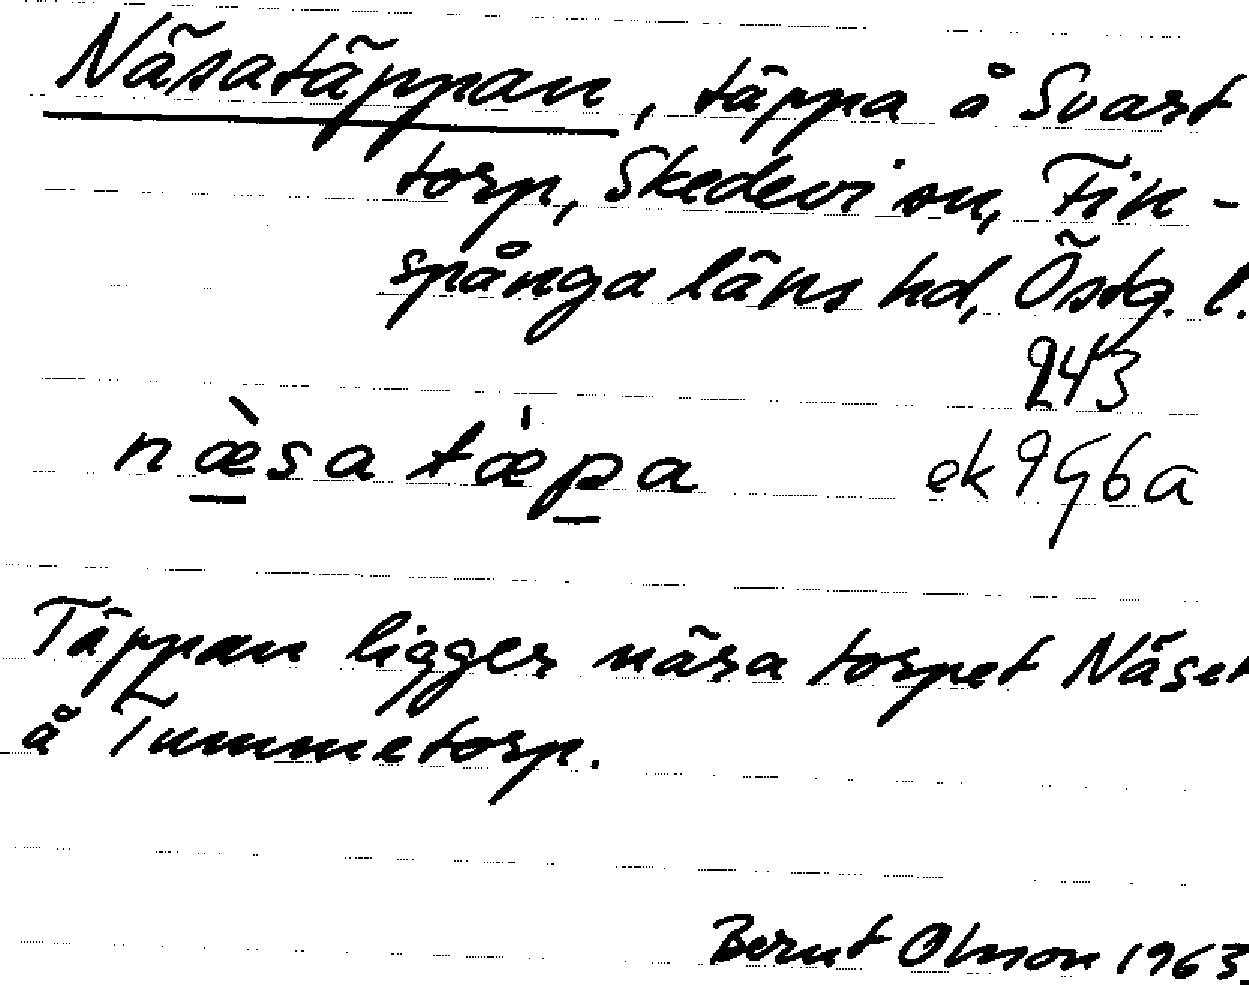 Näsatäppan, täppa å Svart
torp, Skedevi sn, Fin-
spånga läns hd, Östg. l.
243
næ̀sa tæ̍pa ek 9G6a
Täppan ligger nära torpet Näset
å Tummetorp.
Bernt Olsson 1963.